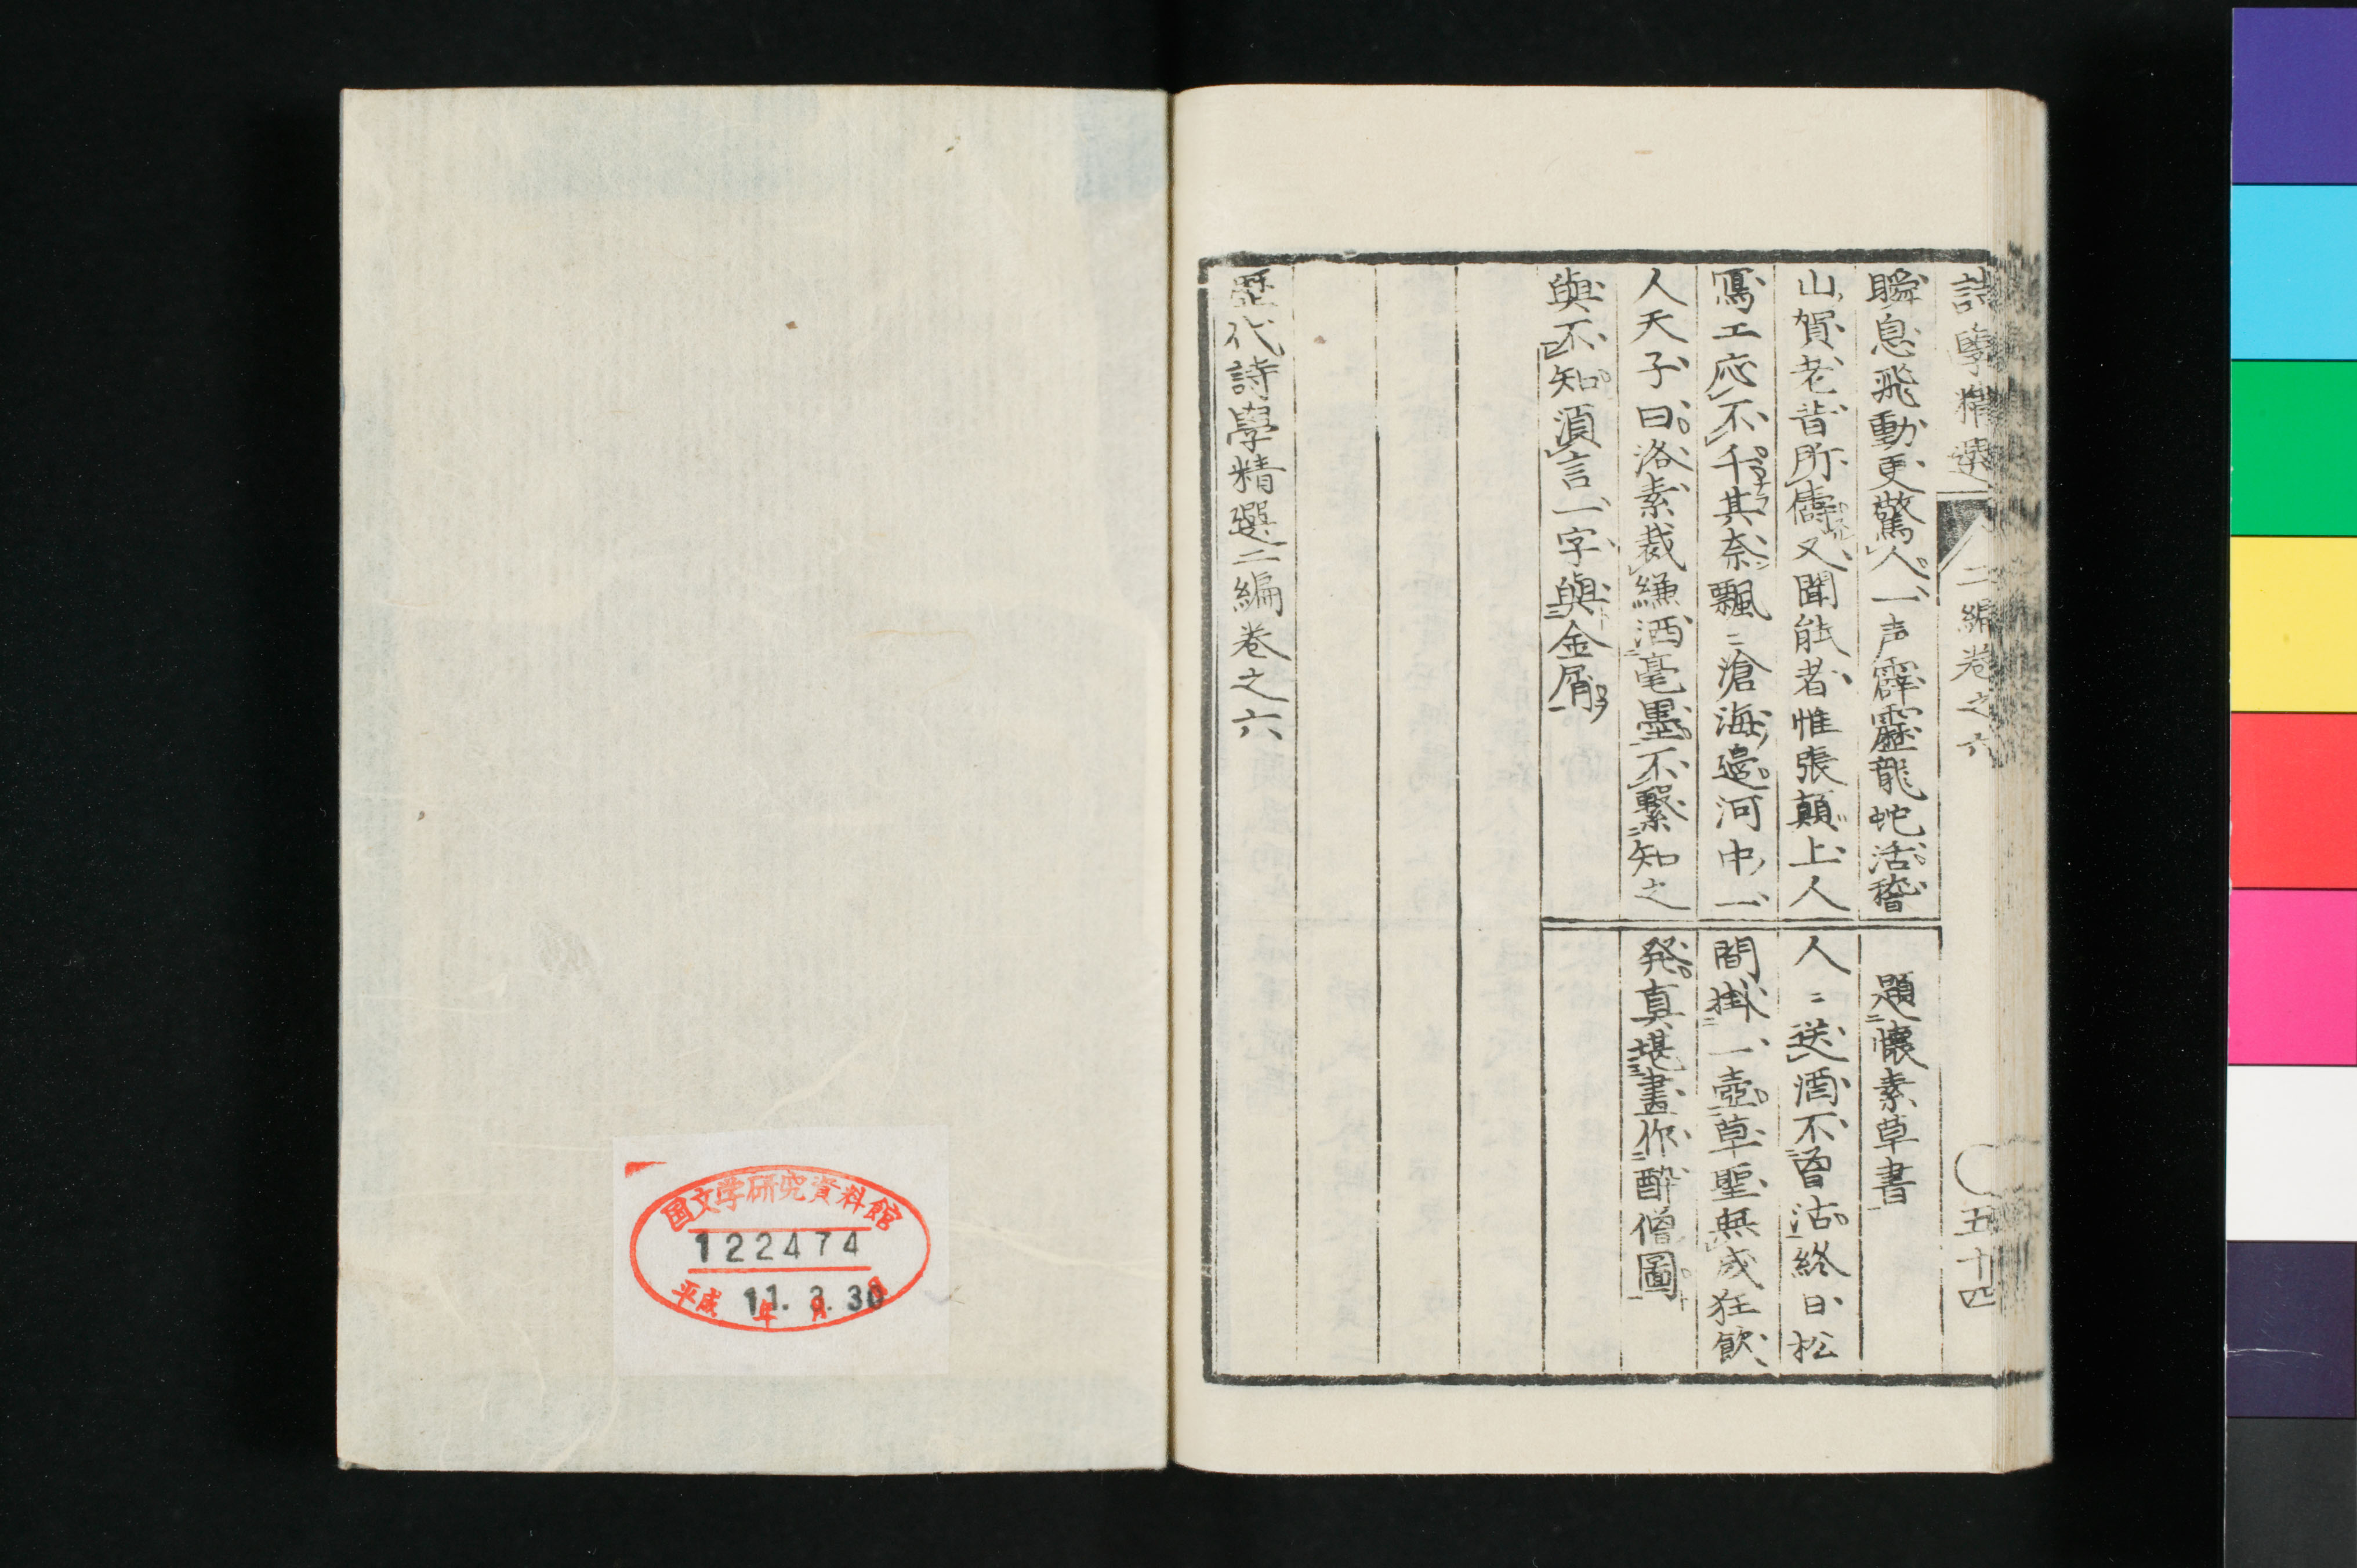 詩學精選 二編卷之六 五十四
瞬息飛動更驚人一声霹靂龍蛇活稽
山賀老昔所儔又聞能者惟張顛上人
寫工応不千其奈飄〻滄海邉河中一
人天子曰洛素裁縑洒毫墨不繫知之
與不知須言一字與金屑
題懷素草書
人〻送酒不曽沽終日松
間掛一壺草聖無成狂飲
発真堪畫作酔僧圖
歴代詩學精選二編卷之六
国文学研究資料館
122474
平成 11年 3月 30日